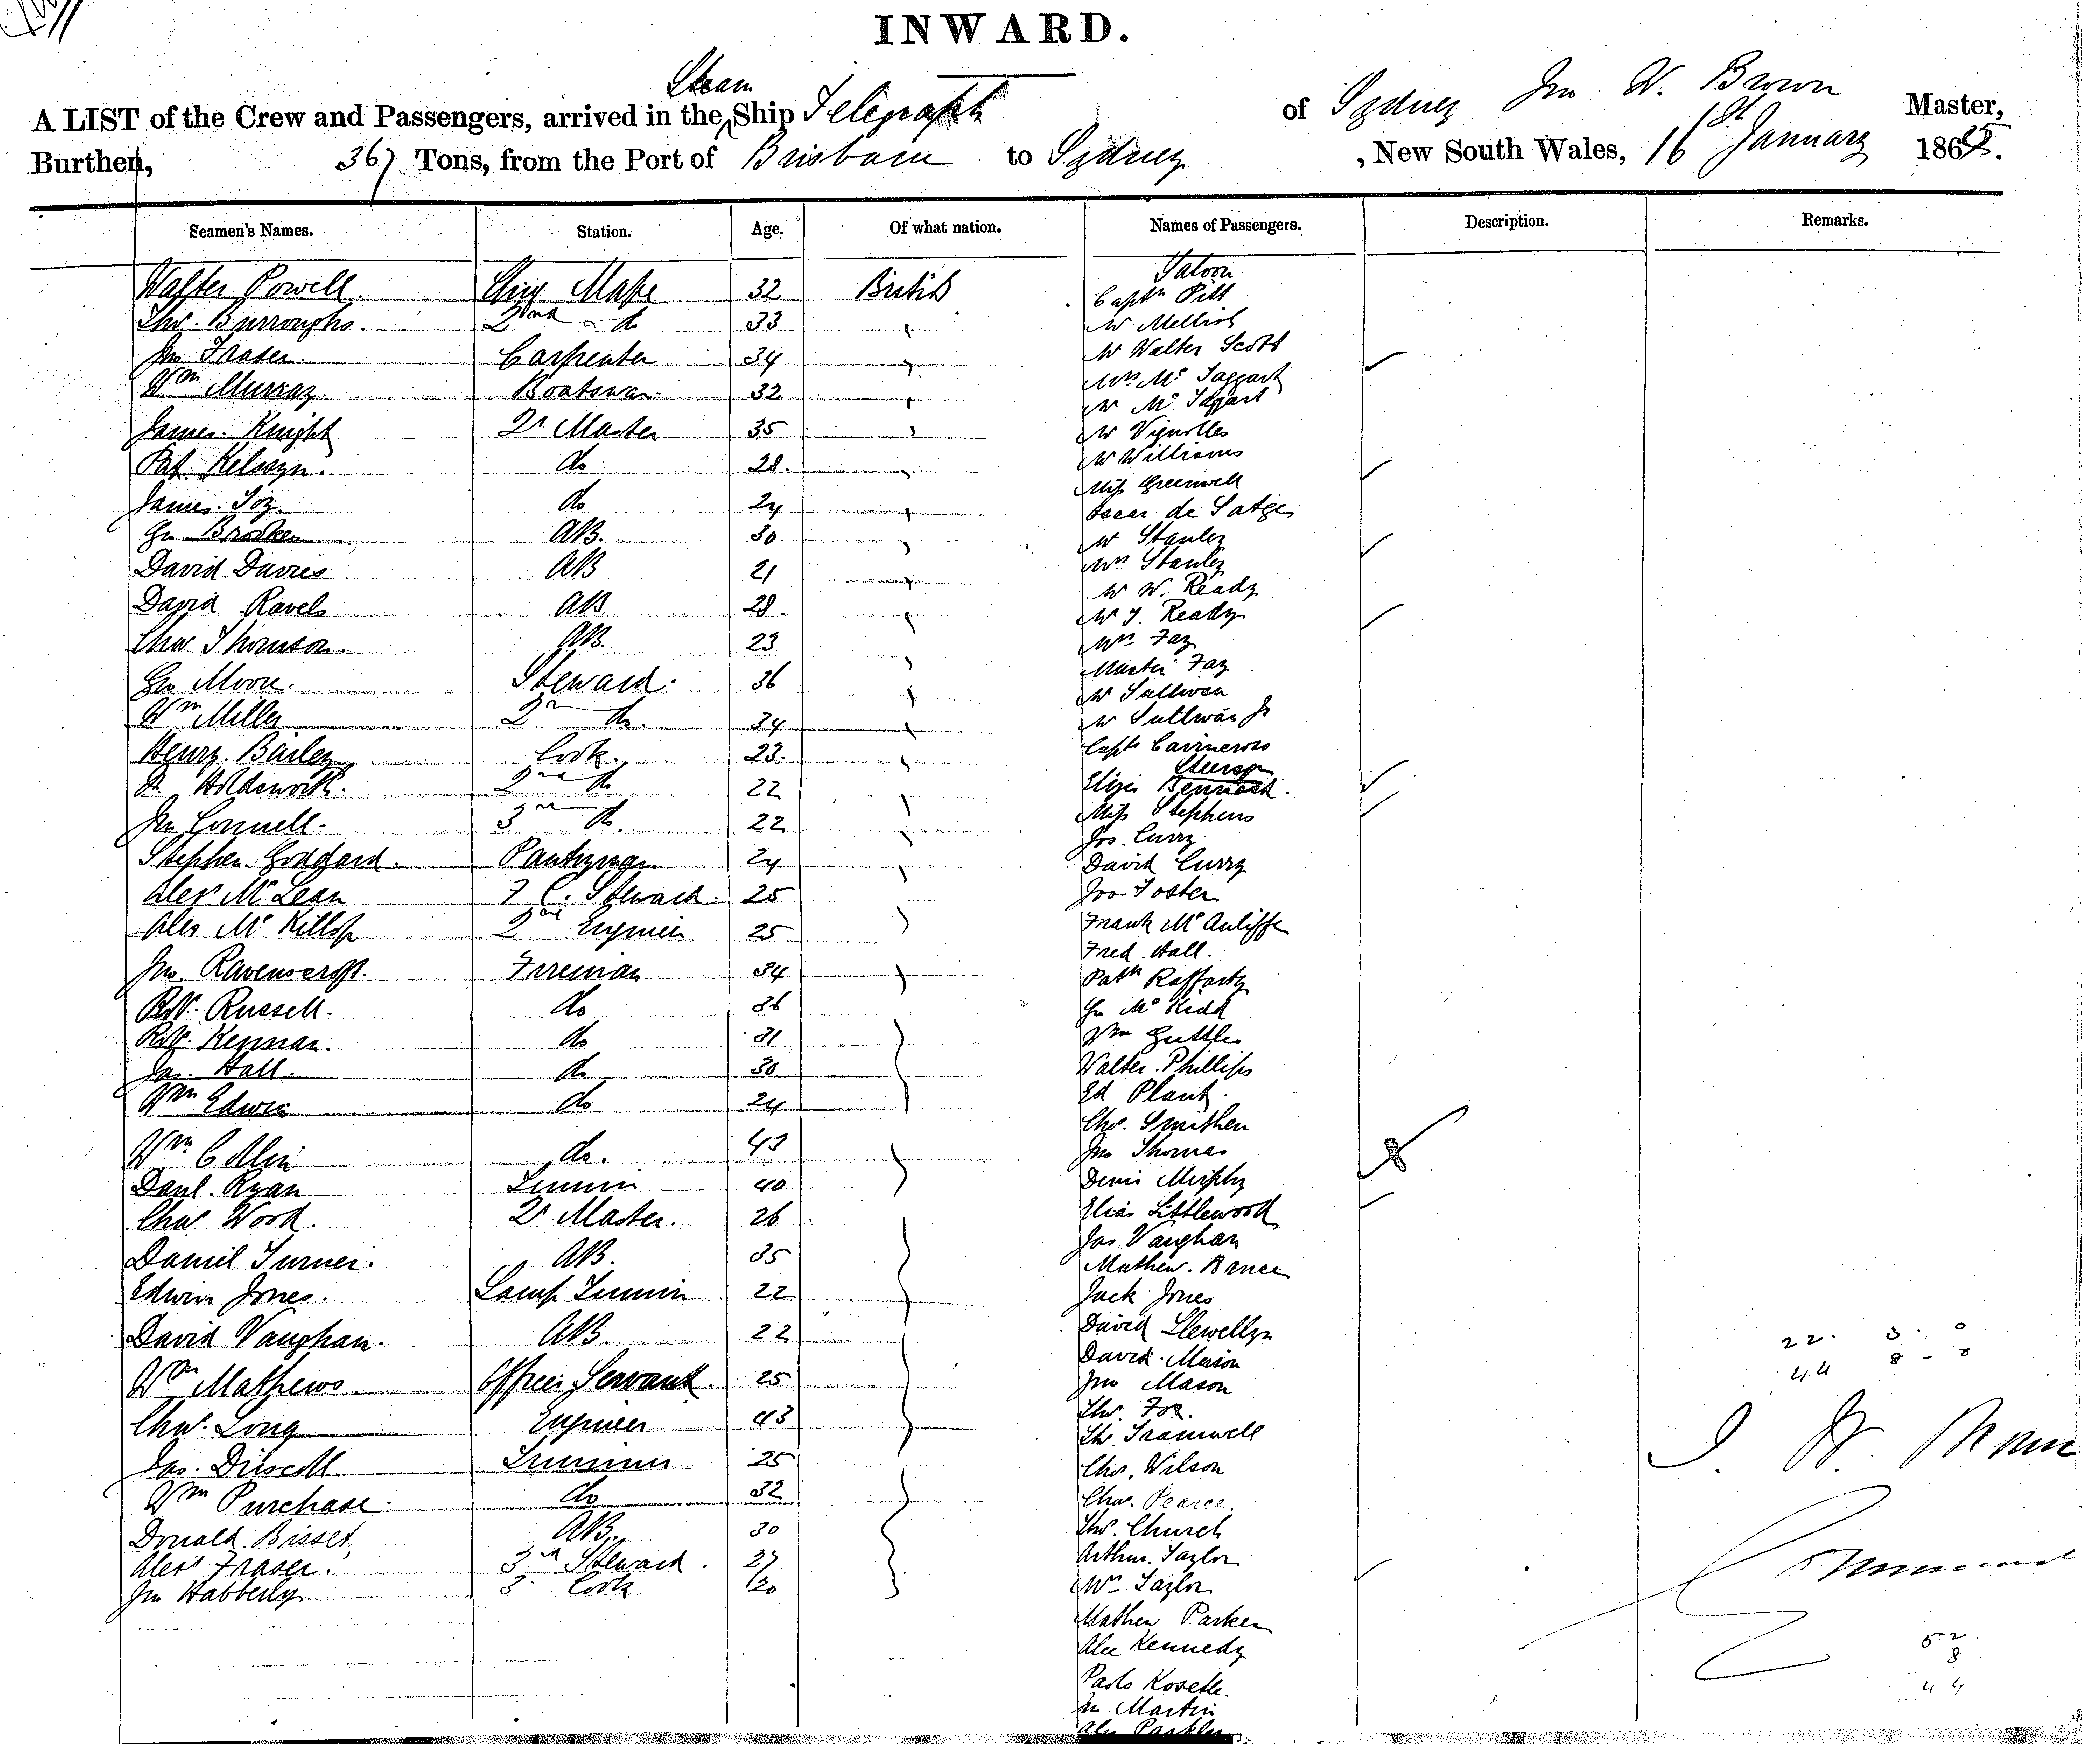 INWARD.
Steam
A LIST of the Crew and Passengers, arrived in the Ship Telegraph of Sydney Jn W. Brown Master,
Burthen, 367 Tons, from the Port of Brisbane to Sydney, New South Wales, 16 January 186
Seamen's Names. Station. Age. Of what nation. Names of Passengers. Description. Remarks.
Saloon
Walter Powell Chief Mate 32 British Captn Pitt
Thos. Burroughs 2nd do 33 Mr Mellish
Jn Fraser Carpenter 34 Mr Walter Scott
Wm Murray Boatswan 32 Mrs Mc Taggart
Mr Mc Taggart
James Knight Qr Master 35 Mr Vignolles
Pat do 28 Mr Williams
Miss Greenwell
James do 24 Oscar de Satge
AB. 30 Mr Stanley
David Davies AB 21 Mrs Stanley
Mr W. Ready
David AB 28 Mr J. Ready
Chas Thomson AB 23 Mrs Fay
Master Fay
Moore Steward 36 Mr Sullivan
Wm Miller 2nd do. 34 Mr Sullivan Jr
Henry Bailey Cook 23 Capt Cairncross
Steerage
Holdsworth 2nd do 22 Eliza Bennack
Miss Stephens
Jn Connell 3rd do. 22 Jos. Curry
Stephen Goddard Pantryman 24 David Curry
Alex Mc Lean F. C. Steward 25 Jno Foster
Alex Mc Killop 2nd Engineer 25 Frank Mc Auliffe
Fred Hall
Jno. Ravenscroft Fireman 34 Patk Rafferty
Robt. Russell do 36 Mc Kidd
Robt. Kennan do 31 Wm
Jas. Hall do 30 Walter Phillips
Wm Edwin do 24 Ed Plant
Chas. Smithen
Wm do. 43 Jno Thomas
Danl. Ryan Trimmer 40 Denis Murphy
Chas Wood Qr Master. 26 Elias Littlewood
Jas Vaughan
Daniel Turner AB 35 Mathew
Edwin Jones Lamp Trimmer 22 Jack Jones
David Vaughan AB 22 David Llewellyn
22. 3. 0
David Mason
44 8 - 0
Wm Mathews Officers Servant 25 Jno Mason
Thos. Fox
Chas. Long Engineer 43 Thos Tramwell
Jas. Driscoll Trimmer 25 Chas. Wilson
Wm Purchase do 32 Chas. Pearce
Donald Bisset AB 30 Thos. Church
Alex Fraser 3rd Steward 27 Arthur Taylor
Jn Habberly 3 Cook 20 Mrs Taylor
Mathew Parker
Alex Kennedy
52
8
44
Martin
Alex